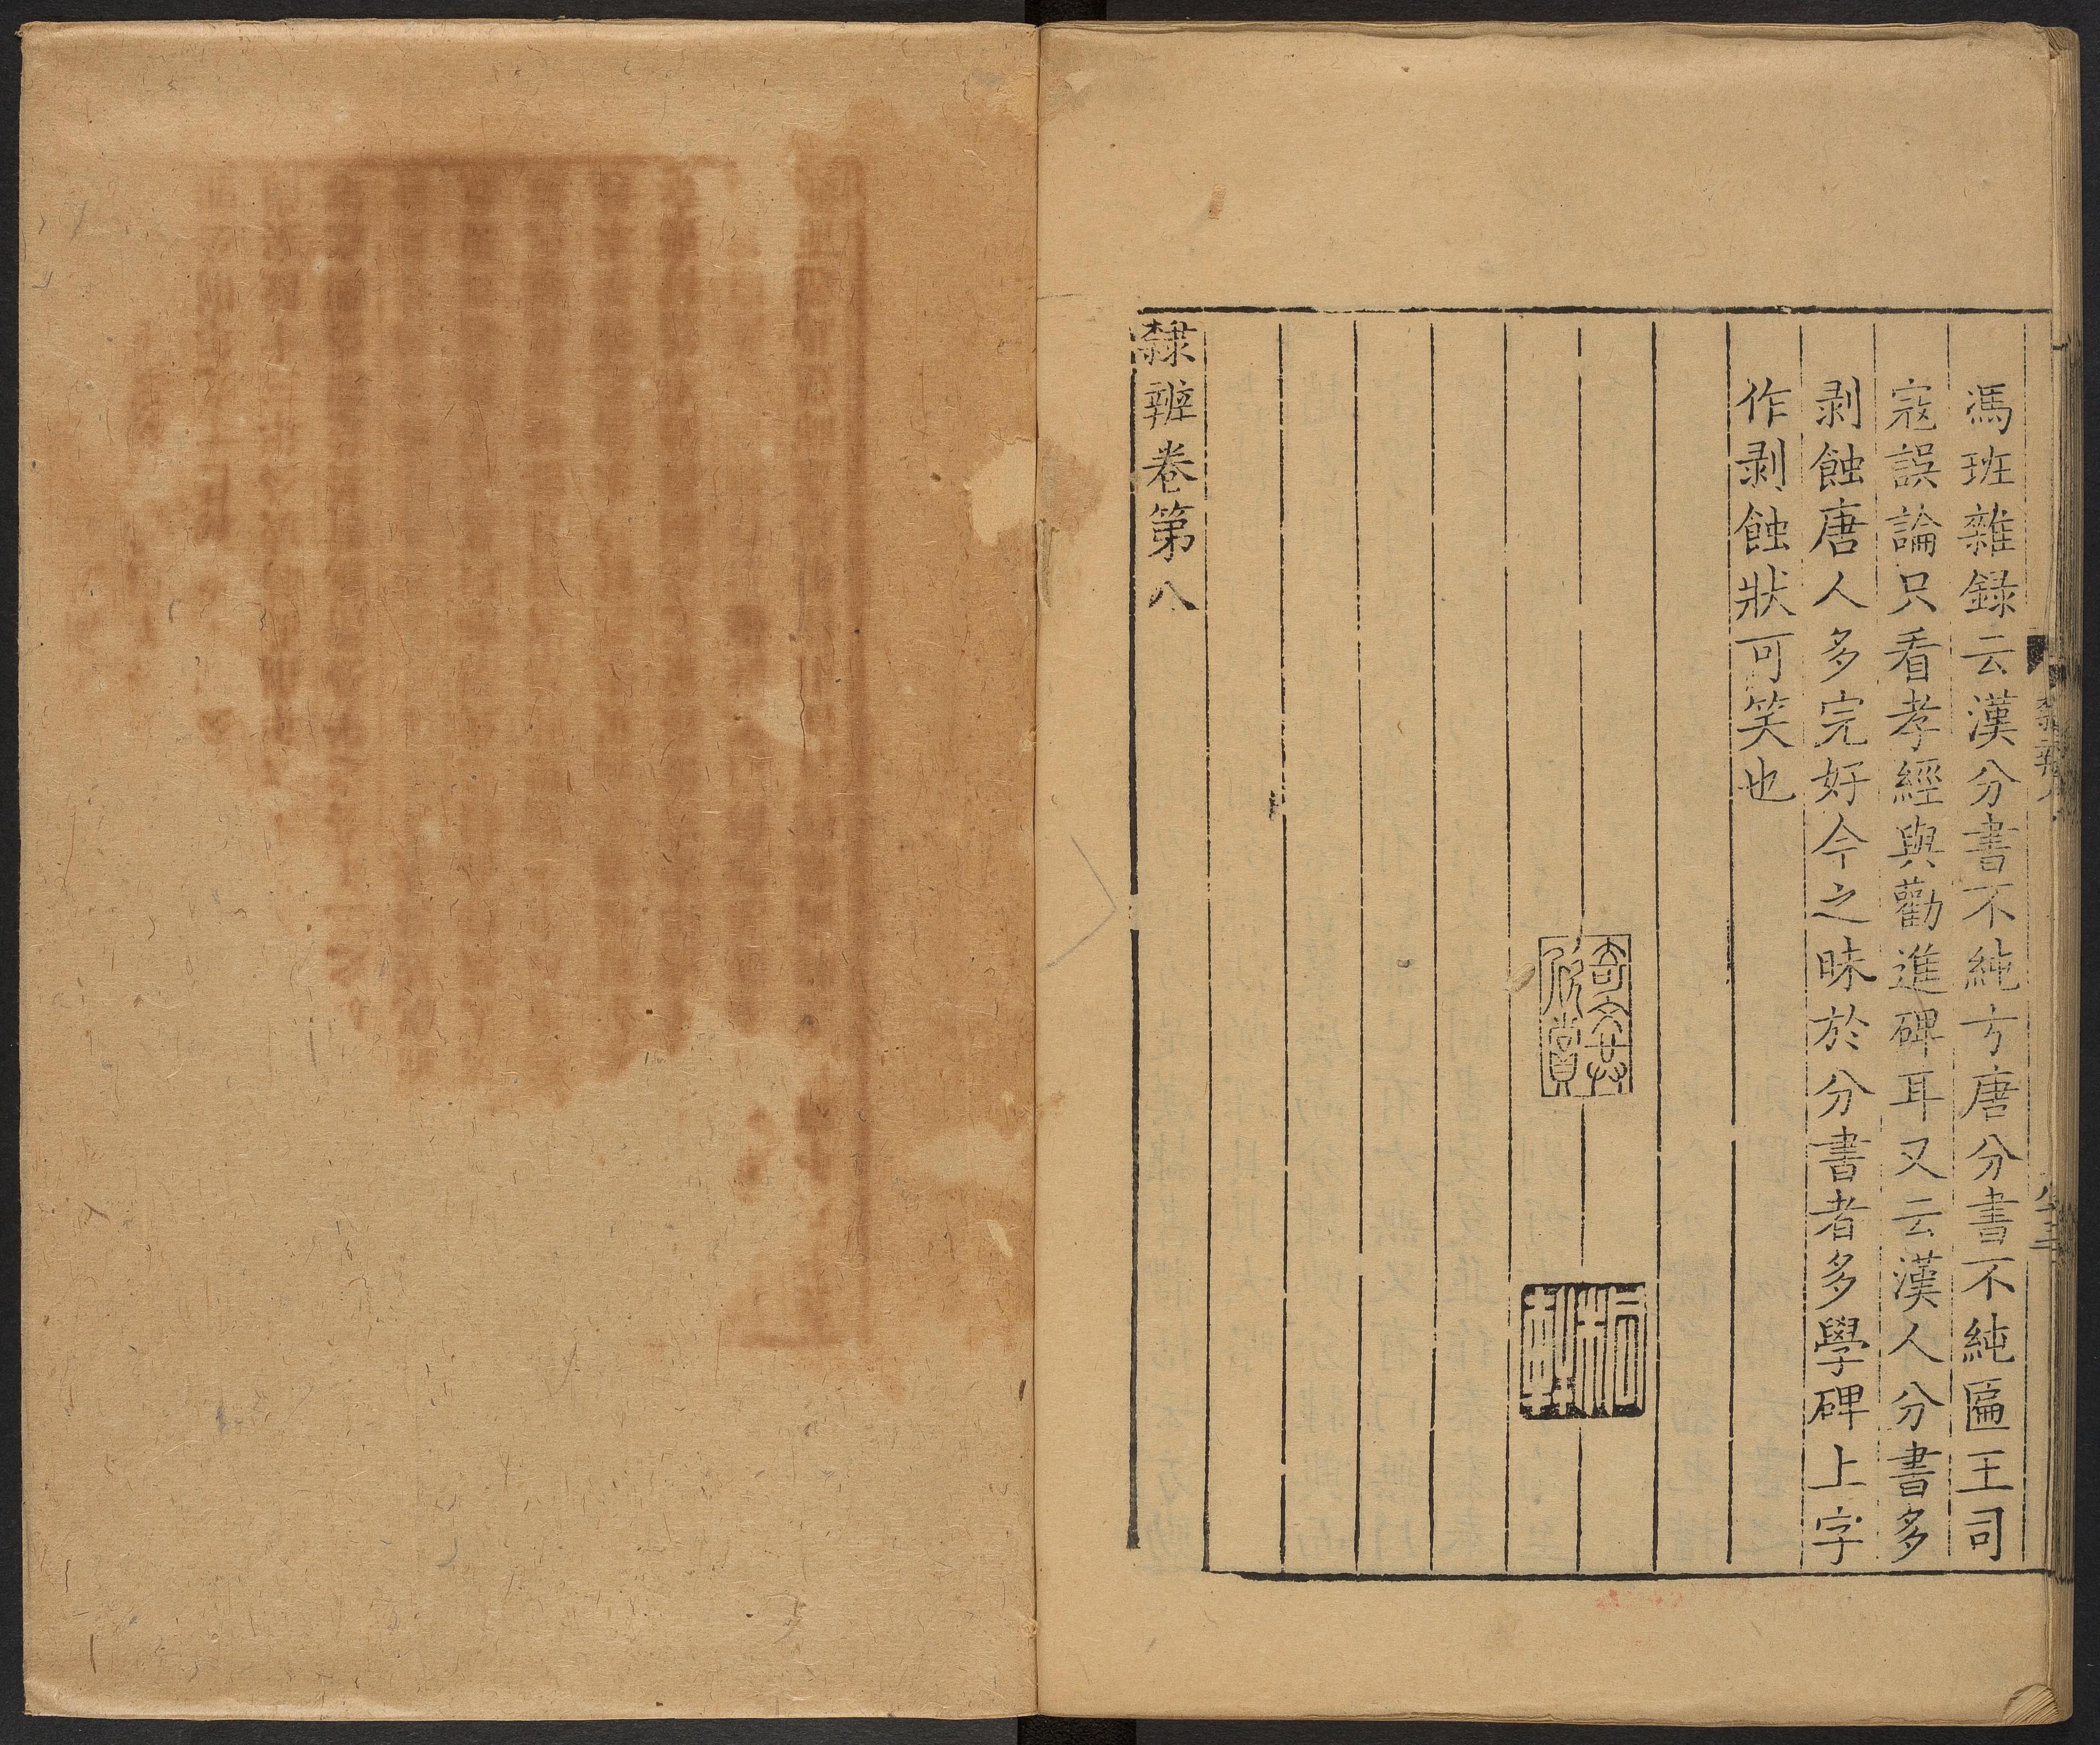 馮班雜録云漢分書不純方唐分書不純匾王司
寇誤論只看孝經與勸進碑耳又云漢人分書多
剥蝕唐人多完好今之昧於分書者多學碑上字
作剥蝕狀可笑也
奇文共
欣賞
隸辨卷第八